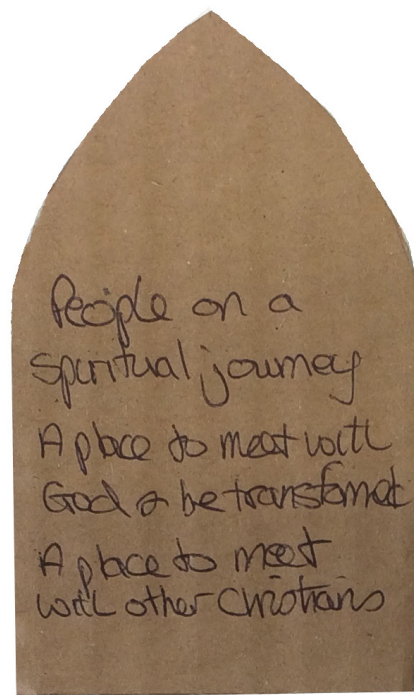 People on a
spiritual journey
A place to meet with
God & be transformed
A place to meet
with other Christians